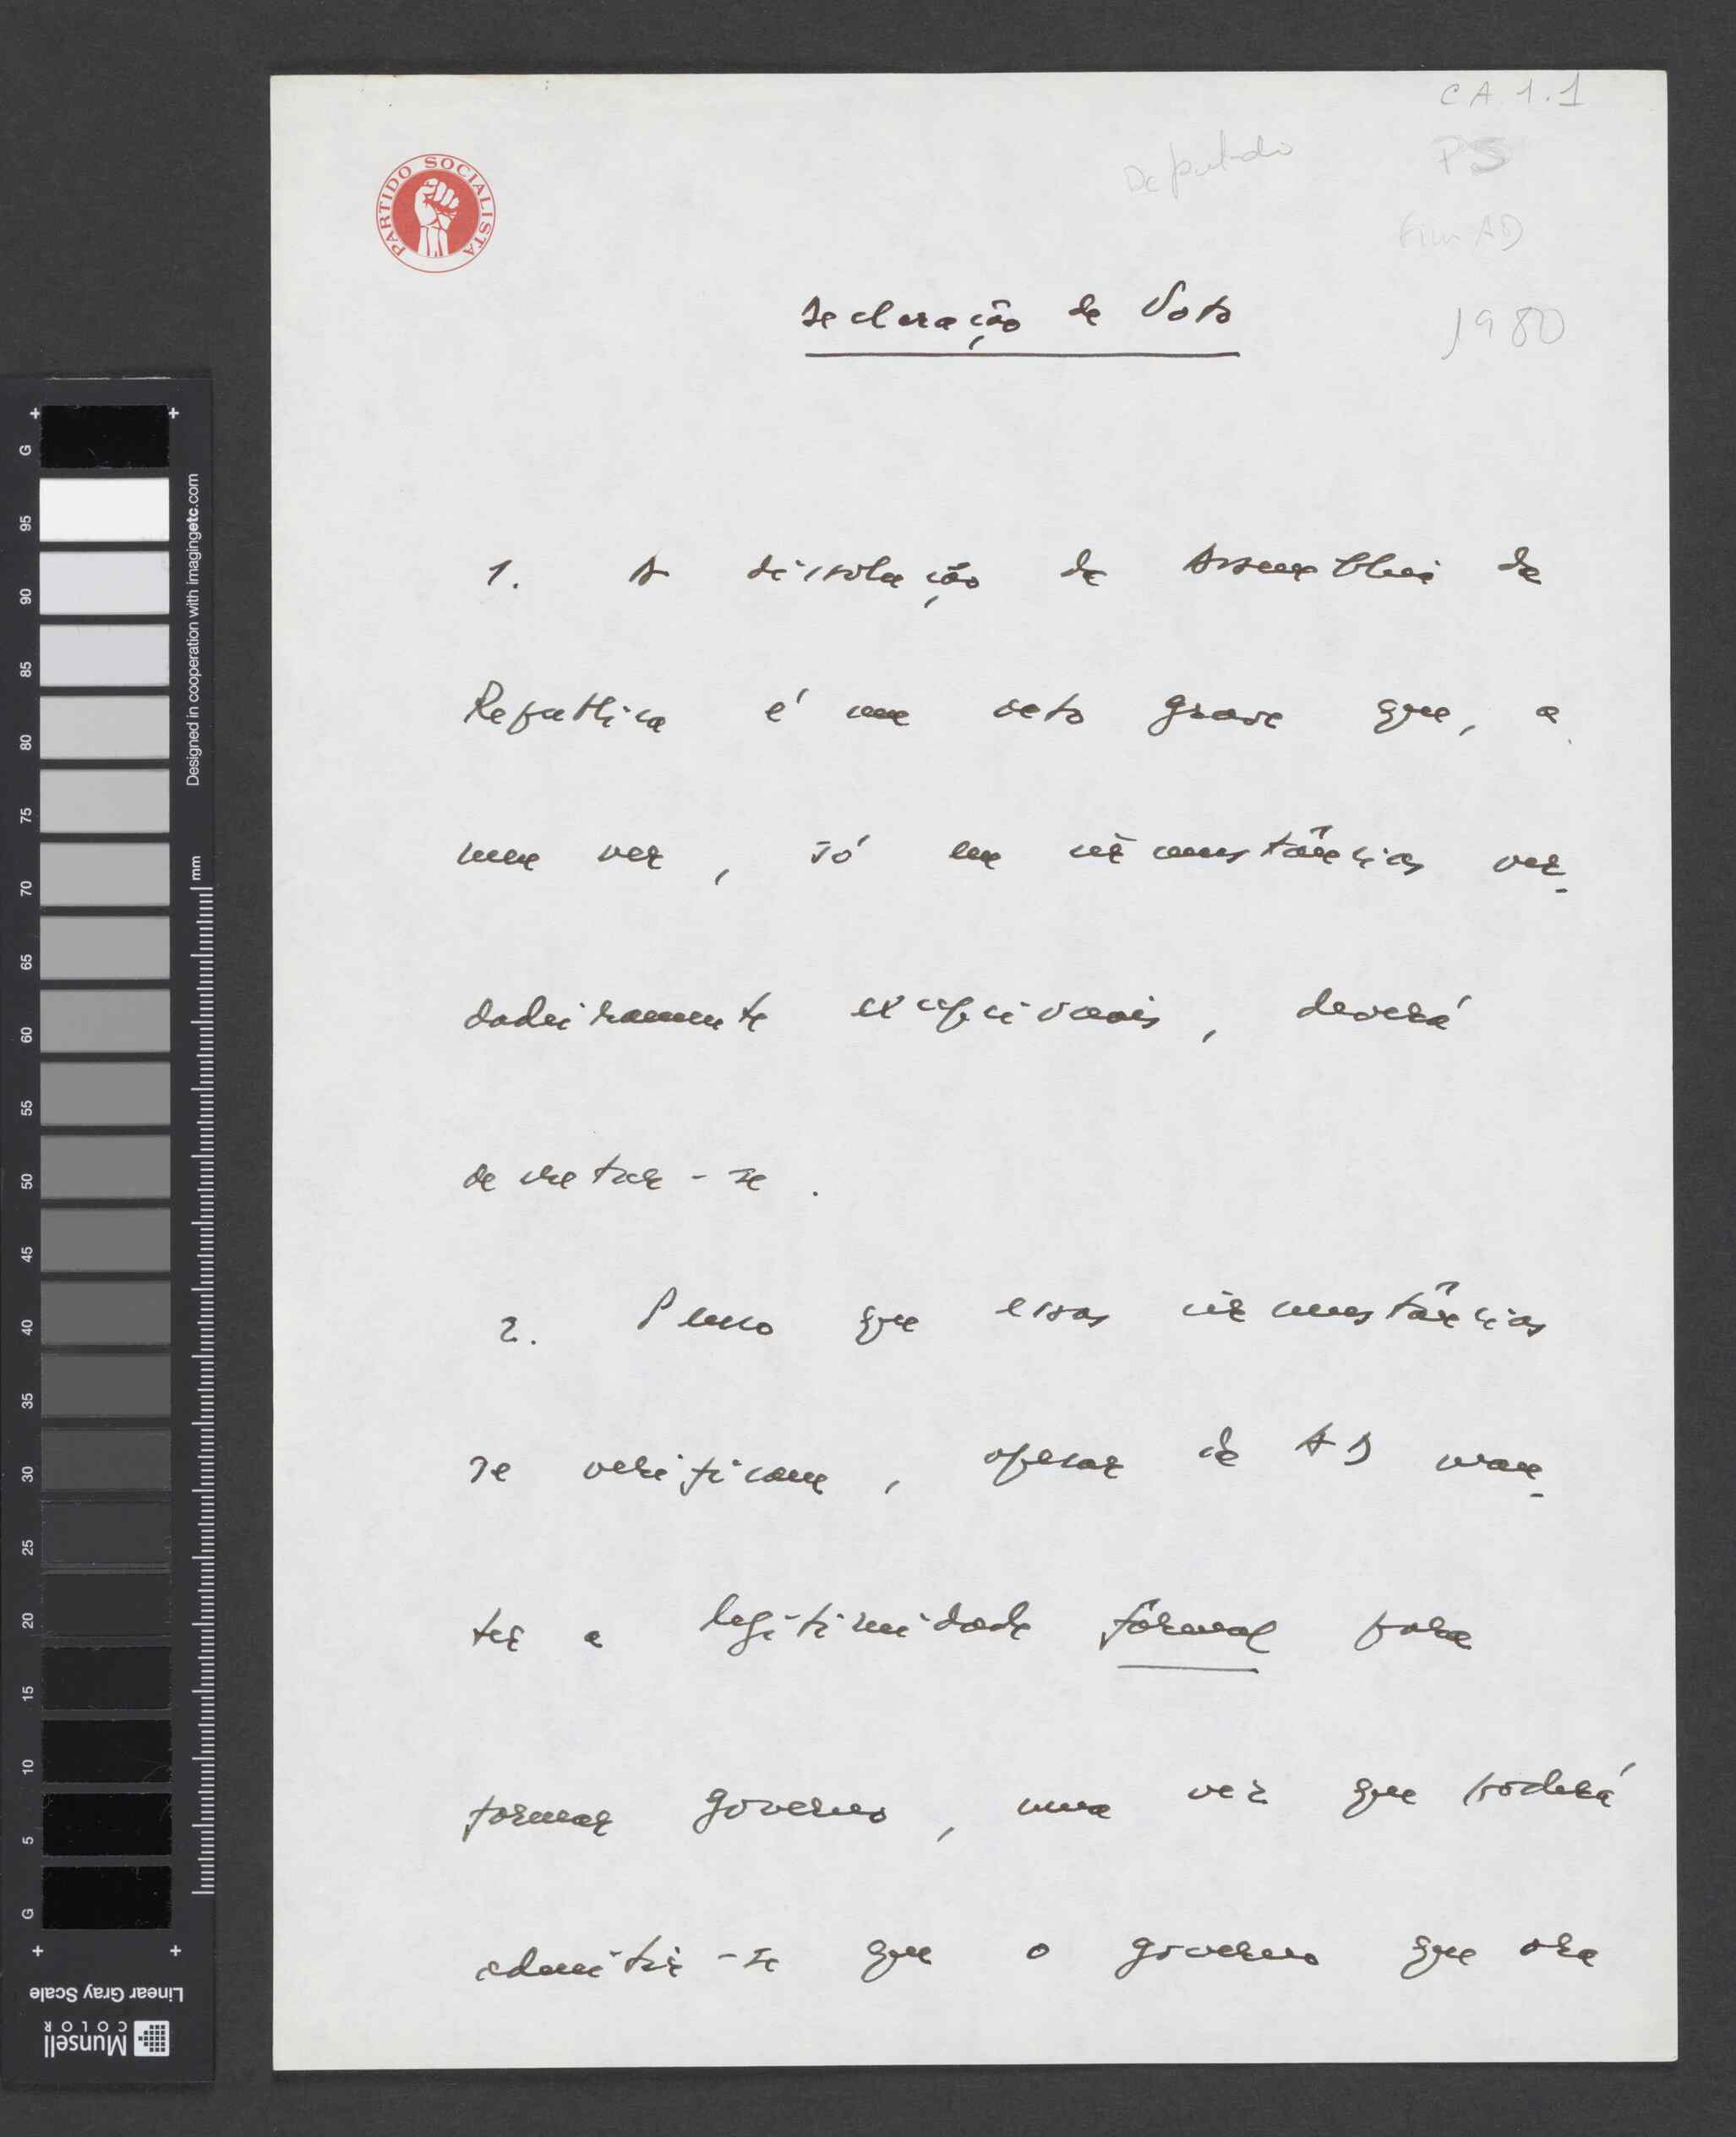 CA 1.1
Deputado
PS
Fim AD
1980
PARTIDO SOCIALISTA
Declaração de Voto
1. A dissolução da Assembleia da
Republica é um acto grave que, a
meu ver, só em circunstâncias ver-
dadeiramente excepcionais, deverá
decretar-se.
2. Penso que essas circunstâncias
se verificam, apesar de AD man-
ter a legitimidade formal para
formar governo, uma vez que poderá
admitir-se que o governo que ora
G
95
90
85
80
75
70
65
60
55
50
45
40
35
30
25
20
15
10
5
G
Designed in cooperation with imagingetc.com
mm
Linear Gray Scale
Munsell
COLOR